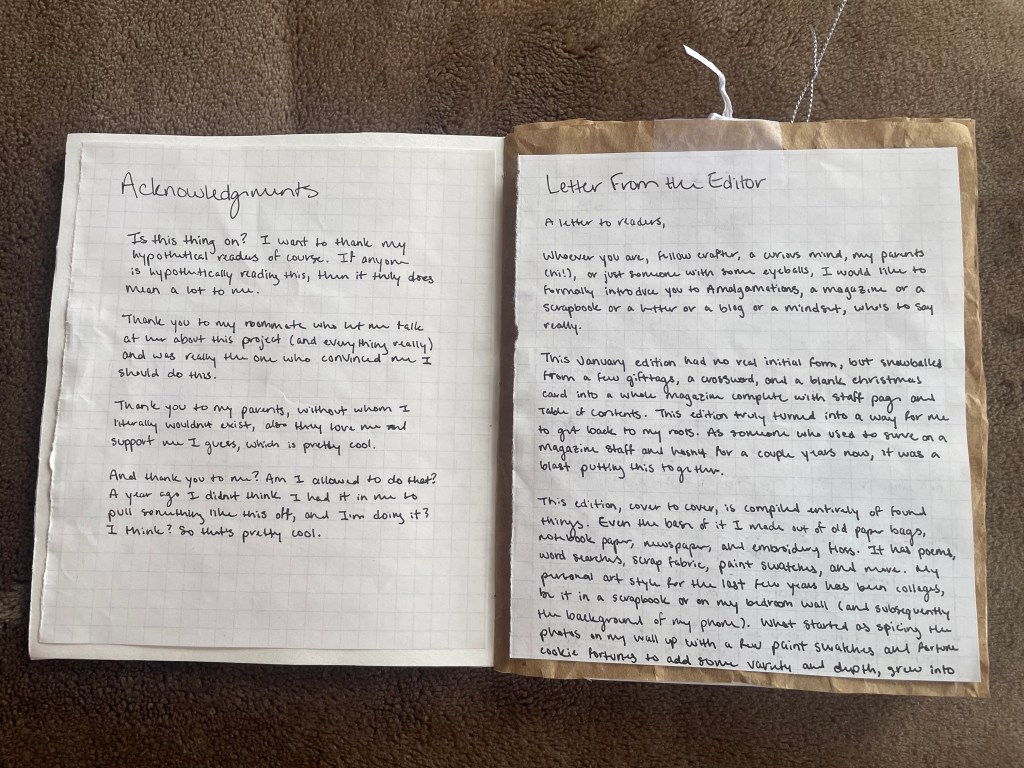 Acknowledgments
Is this thing on? I want to thank my
hypothetical readers of course. If anyone
is hypothetically reading this, then it truly does
mean a lot to me.
Thank you to my roommate who let me talk
at her about this project (and everything really)
and was really the one who convinced me I
should do this.
Thank you to my parents, without whom I
literally wouldn't exist, also they love me and
support me I guess, which is pretty cool.
And thank you to me? Am I allowed to do that?
A year ago I didn't think I had it in me to
pull something like this off, and I'm doing it?
I think? So that's pretty cool.
Letter From the Editor
A letter to readers,
Whoever you are, fellow crafter, a curious mind, my parents
(hi!), or just someone with some eyeballs, I would like to
formally introduce you to Amalgamations, a magazine or a
scrapbook or a letter or a blog or a mindset, who's to say
really.
This January edition had no real initial form, but snowballed
from a few gifttags, a crossword, and a blank christmas
card into a whole magazine complete with staff page and
Table of Contents. This edition truly turned into a way for me
to get back to my roots. As someone who used to serve on a
magazine staff and hasn't for a couple years now, it was a
blast putting this together.
This edition, cover to cover, is compiled entirely of found
things. Even the base of it I made out of old paper bags,
notebook paper, newspaper, and embroidery floss. It has poems,
word searches, scrap fabric, paint swatches, and more. My
personal art style for the last few years has been collages,
be it in a scrapbook or on my bedroom wall (and subsequently
the background of my phone). What started as spicing the
photos on my wall up with a few paint swatches and fortune
cookie fortunes to add some variety and depth, grew into